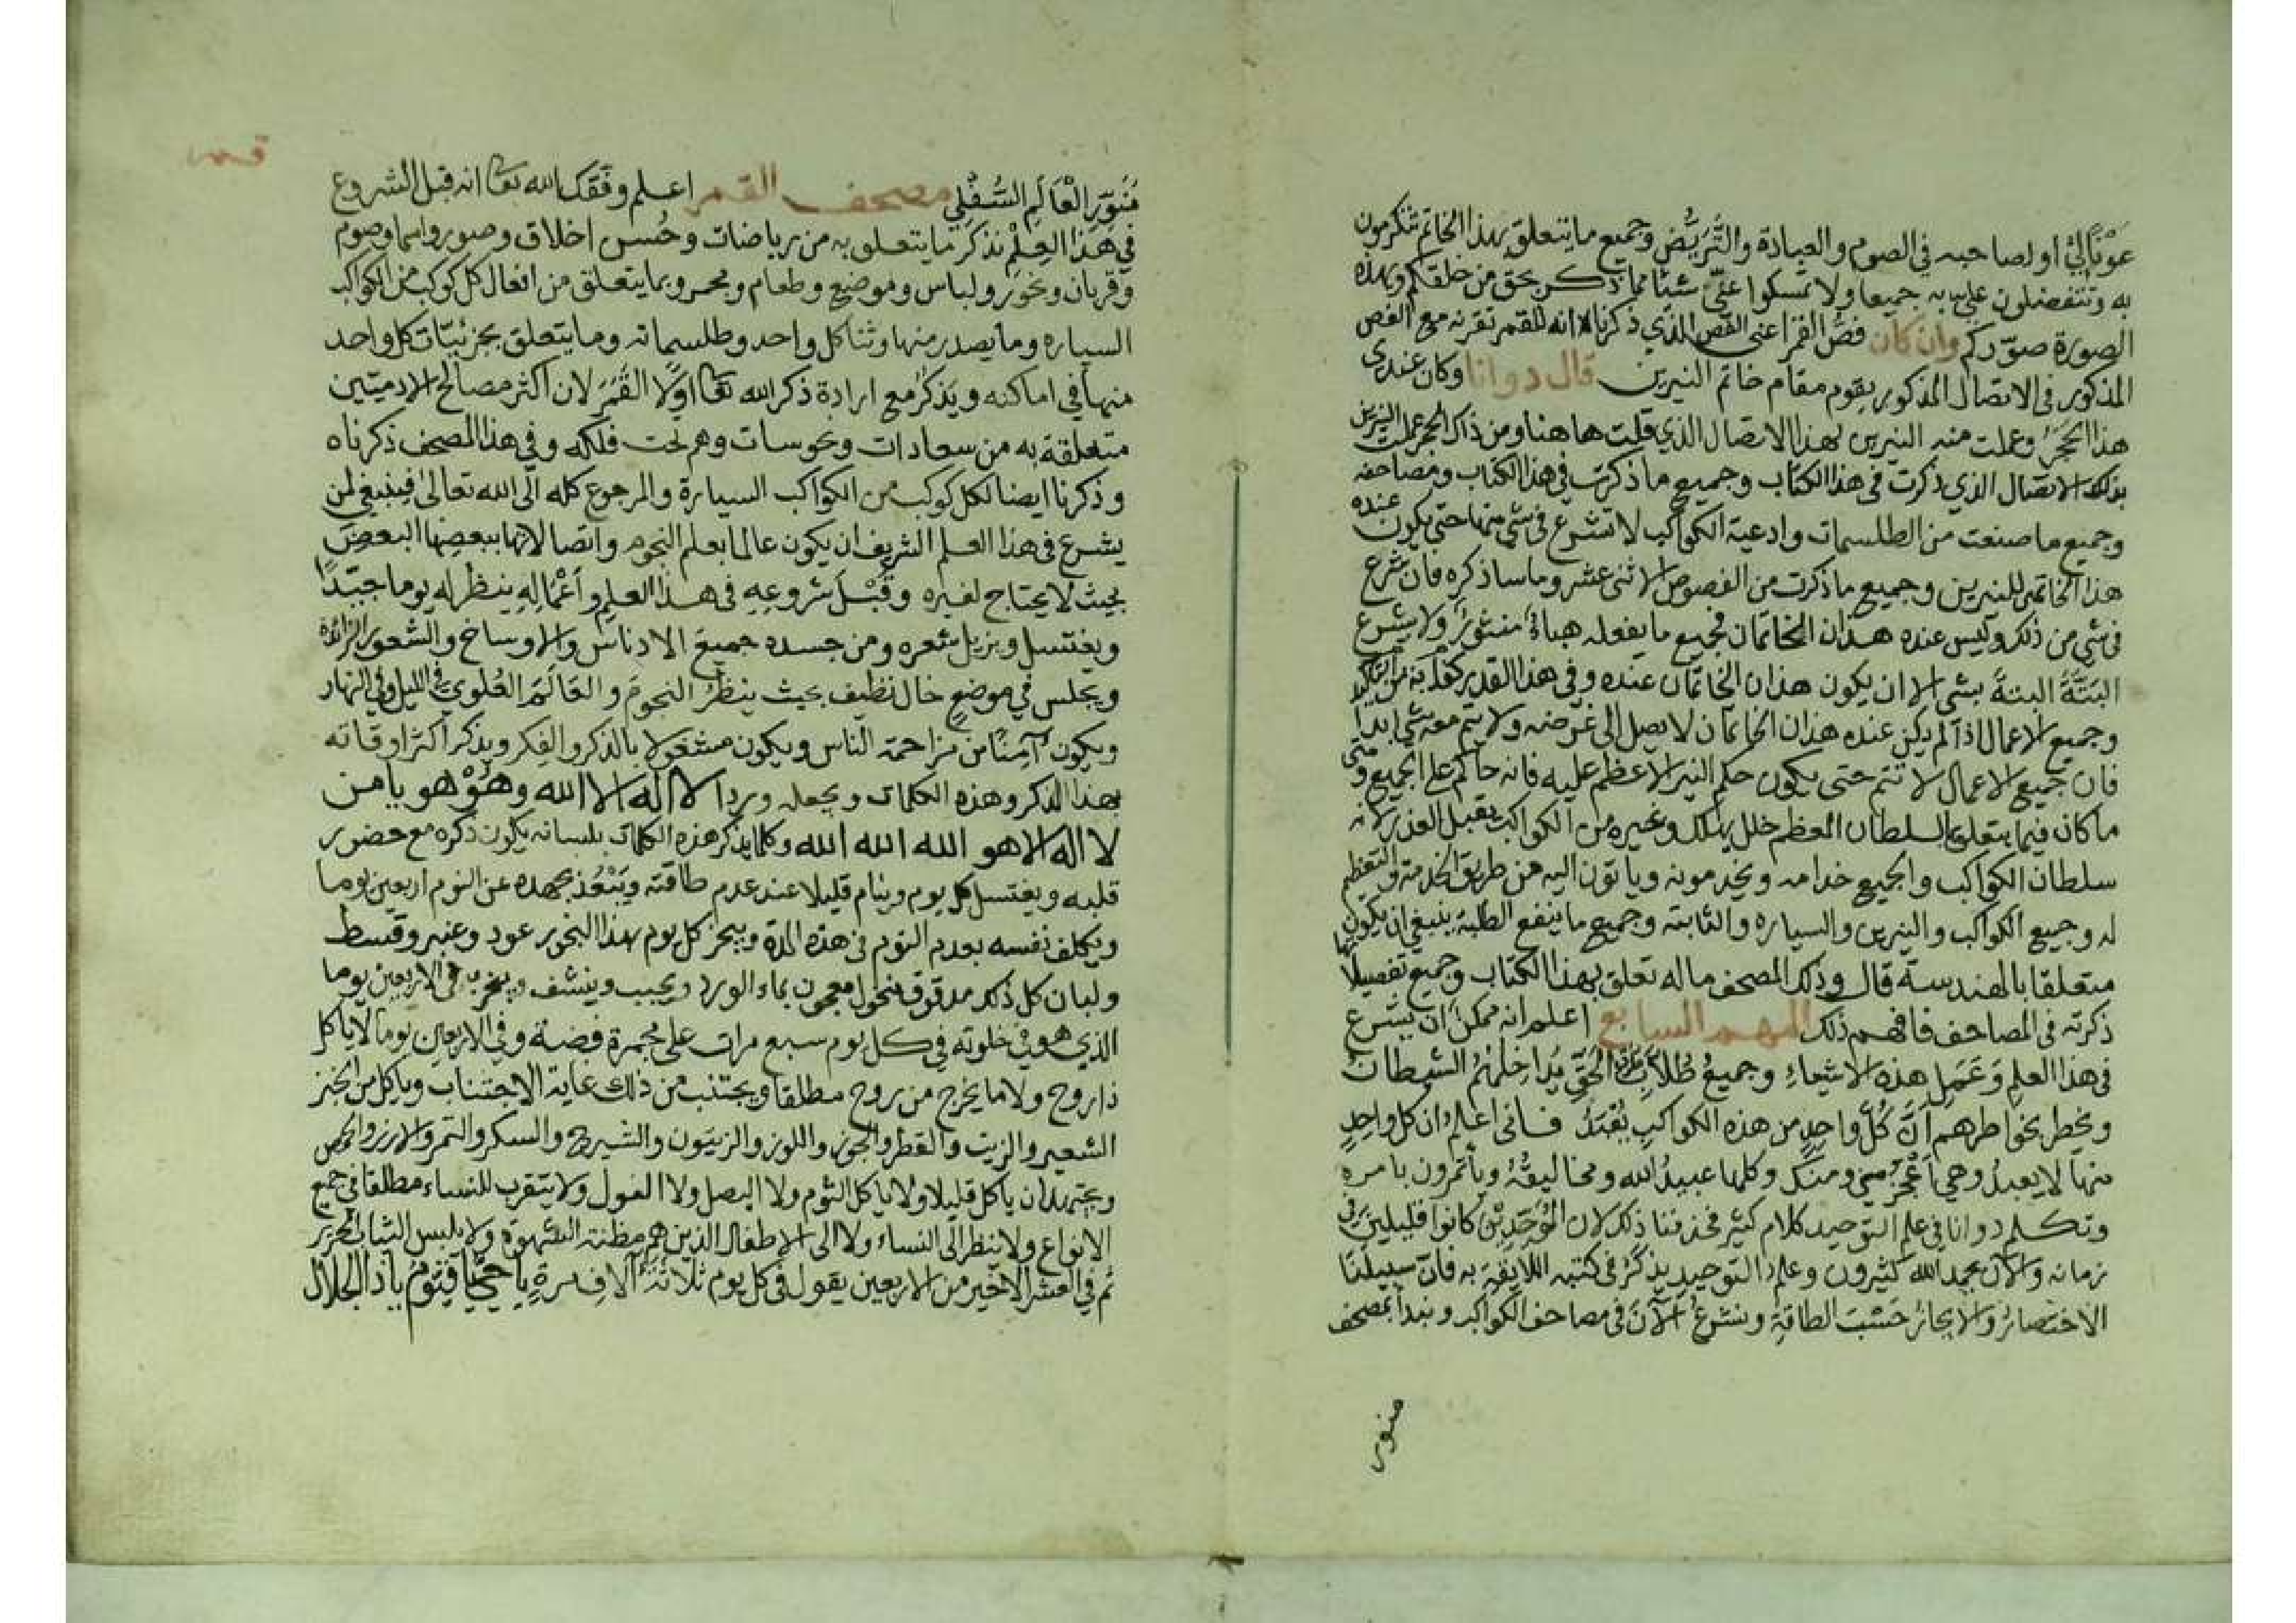 عَوْنًا لِيْ او لصاحبه في الصوم والعبادة والتَّرَيُّضِ وجميع ما يتعلق بهذا الخاتم تتكرمون
به وتتفضلون علي به جميعا ولا تمسكوا عنّي شيئا مما ذكر بحق من خلقكم وبهذه
الصورة صوّركم وان كان فصُّ القمر اعني الفص الذي ذكرنا انه للقمر تقرنه مع الفص
المذكور في الاتصال المذكور يقوم مقام خاتم النيرين قال دوانا وكان عندي
هذا الحَجَرُ وعملت منه النيرين بهذا الاتصال الذي قلت هاهنا ومن ذاك الحجر عملت النيرين
بذلك الاتصال الذي ذكرت في هذا الكتاب وجميع ما ذكرت في هذا الكتاب ومصاحفه
وجميع ما صنعت من الطلسمات وادعية الكواكب لا تشرع في شي منها حتى يكون عنده
هذا الخاتم للنيرين وجميع ما ذكرت من الفصوص الاثنى عشر وما ساذكره فان شرع
في شي من ذلك وليس عنده هذان الخاتمان فجميع ما يفعله هباءً منثورًا ولا يشرع
البَتَّةَ البتةَ بشي الا ان يكون هذان الخاتمان عنده وفي هذا القدر كفاية
وجميع الاعمال اذا لم يكن عنده هذان الخاتمان لا يصل الى غرضه ولا يتم معه شي ابدا
فان جميع الاعمال لا تتم حتى يكون حكم النير الاعظم عليه فانه حاكم على الجميع ومتى
ما كان فيما يتعلق بالسلطان المعظم خلل يهلك وغيره من الكواكب يقبل العذر لانه
سلطان الكواكب والجميع خدامه ويخدمونه وياتون اليه من طريق الخدمة والتعظيم
له وجميع الكواكب والنيرين والسياره والثابته وجميع ما ينفع الطلبة ينبغي ان يكون
متعلقا بالهندسة قال وذلك المصحف ما له تعلق بهذا الكتاب وجميع تفصيلاتها
ذكرته في المصاحف فافهم ذلك المهم السابع اعلم انه ممكن ان يشرع
في هذا العلمِ وَعَمَلِ هذه الاشياءِ وجميعُ طُلاَّبِ الحَقِّ يُدَاخِلُهُمُ الشيطانُ
ويخطر بخواطرهم اَنَّ كُلَّ واحدٍ من هذه الكواكبِ يُعْبَدُ فاني اعلم ان كل واحدٍ
منها لا يعبدُ وهي اَعْجَزُ مني ومنك وكلها عبيدُ الله ومخاليقُهُ ويأتمرون بامره
وتكلم دوانا في علم التوحيد كلام كثير فحذفنا ذلك لان المُوَحِّدِيْنَ كانوا قليلين في
زمانه والآن بحمد الله كثيرون وعلم التوحيد يذكرُ في كتبه اللايقة به فان سبيلنا
الاختصارُ والايجازُ حَسْبَ الطاقةِ ونشرعُ الآنَ في مصاحف الكواكب ونبدأ بمصحف
منور
مُنَوِّرِ الْعَالَمِ السُّفْلِي مصحف القمر اعلم وفقك الله تعا انه قبل الشروع
في هذا العِلْمِ نذكر ما يتعلق به من رياضات وحُسن اخلاق وصور واسما وصوم
وقربان وبخور ولباس وموضع وطعام وبحر وبما يتعلق من افعال كل كوكب من الكواكب
السياره وما يصدر منها وثنا كل واحد وطلسماته وما يتعلق بجزئيّات كل واحد
منها في اماكنه ويَذكُرُ مع ارادة ذكر الله تعا اولًا القَمَرَ لان اكثر مصالح الادميّين
متعلقة به من سعادات ونحوسات وهم تحت فلكه وفي هذا المصحف ذكرناه
وذكرنا ايضا لكل كوكب من الكواكب السيارة والمرجوع كله الى الله تعالى فينبغي لمن
يشرع في هذا العلم الشريف ان يكون عالما بعلم النجوم واتصالاتها ببعضها البعض
بحيث لا يحتاج لغيره وَقَبْلَ شروعِهِ في هذا العلم وأَعْمالِهِ ينظر له يوما جيّدًا
ويغتسل ويزيل شعره ومن جسده جميعَ الادناس والاوساخ والشعور الزائدة
ويجلس في موضعٍ خال نظيف بحيث ينظرُ النجومَ والعَالَمَ العُلوي في الليل وفي النهار
ويكون آمنًا من مزاحمة الناس ويكون مشغولا بالذكر والفِكر ويذكر اكثر اوقاته
بهذا الذكر وهذه الكلمات ويجعله وردا لا اله الا الله وهُوْ هو يا من
لا اله الا هو الله الله الله وكلما يذكر هذه الكلمات بلسانه يكون ذكره مع حضور
قلبه ويغتسل كل يوم وينام قليلا عند عدم طاقته ويَبْعُدُ بجهده عن النوم اربعين يوما
ويكلف نفسه بعدم النوم في هذه المدة ويبخر كل يوم بهذا البخور عود وعنبر وقسط
ولبان كل ذلك مدقوق منخول معجون بماء الورد ويحبب وينشف ويبخر به في الاربعين يوما
الذي هو في خلوته في كل يوم سبع مرات على مجمرة فضة وفي الاربعين يوما لا ياكل
ذا روح ولا ما يخرج من روح مطلقا ويجتنب من ذلك غاية الاجتناب وياكل من الخبز
الشعير والزيت والقطر والجوز واللوز والزيتون والشيرج والسكر والتمر والارز والحمص
ويجتهد ان ياكل قليلا ولا ياكل الثوم ولا البصل ولا الفول ولا يتقرب للنساء مطلقا في جميع
الانواع ولا ينظر الى النساء ولا الى الاطفال الذين هم مظنة الشهوة ولا يلبس الثياب الحرير
ثم في العشر الاخير من الاربعين يقول في كل يوم ثلاثةَ آلافِ مرةٍ يا حيُّ يا قيّومُ يا ذا الجلال